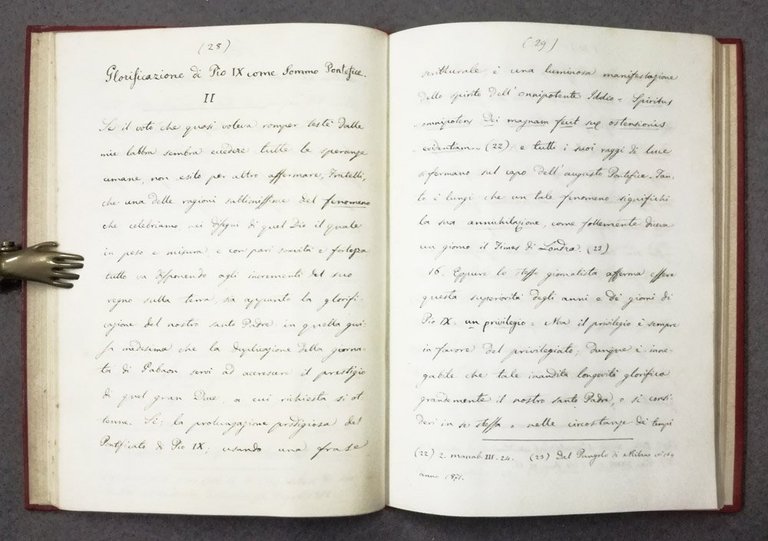 (28)
Glorificazione di Pio IX come Sommo Pontefice.
II
Se il voto che quasi voleva romper testè dalle
mie labbra sembra eccedere tutte le speranze
umane, non esito per altro affermare, Fratelli,
che una delle ragioni sublimissime del fenomeno
che celebriamo nei disegni di quel Dio il quale
in peso e misura, e con pari soavità e fortezza
tutto va disponendo agli incrementi del suo
regno sulla terra, sia appunto la glorifi-
cazione del nostro santo Padre in quella gui-
sa medesima che la duplicazione della giorna-
ta di Gabaon servì ad accrescere il prestigio
di quel gran Duce, a cui richiesta si ot
tenne. Sì; la prolungazione prodigiosa del
Pontificato di Pio IX, usando una frase
(29)
scritturale, è una luminosa manifestazione
dello spirito dell'onnipotente Iddio = Spiritus
omnipotens Dei magnam fecit suæ ostensionis
evidentiam = (22) e tutti i suoi raggi di luce
si fermano sul capo dell'augusto Pontefice. Tan-
to è lungi che un tale fenomeno significhi
la sua annichilazione, come follemente diceva
un giorno il Times di Londra. (23)
16. Eppure lo stesso giornalista afferma essere
questa superiorità degli anni e de' giorni di
Pio IX, un privilegio = Ma il privilegio è sempre
in favore del privilegiato; dunque è inne-
gabile che tale inaudita longevità glorifica
grandemente il nostro santo Padre, o si consi-
deri in se stessa o nelle circostanze de' tempi
(22) 2. Macab. III. 24. (23) Dal Pungolo di Milano
anno 1871.